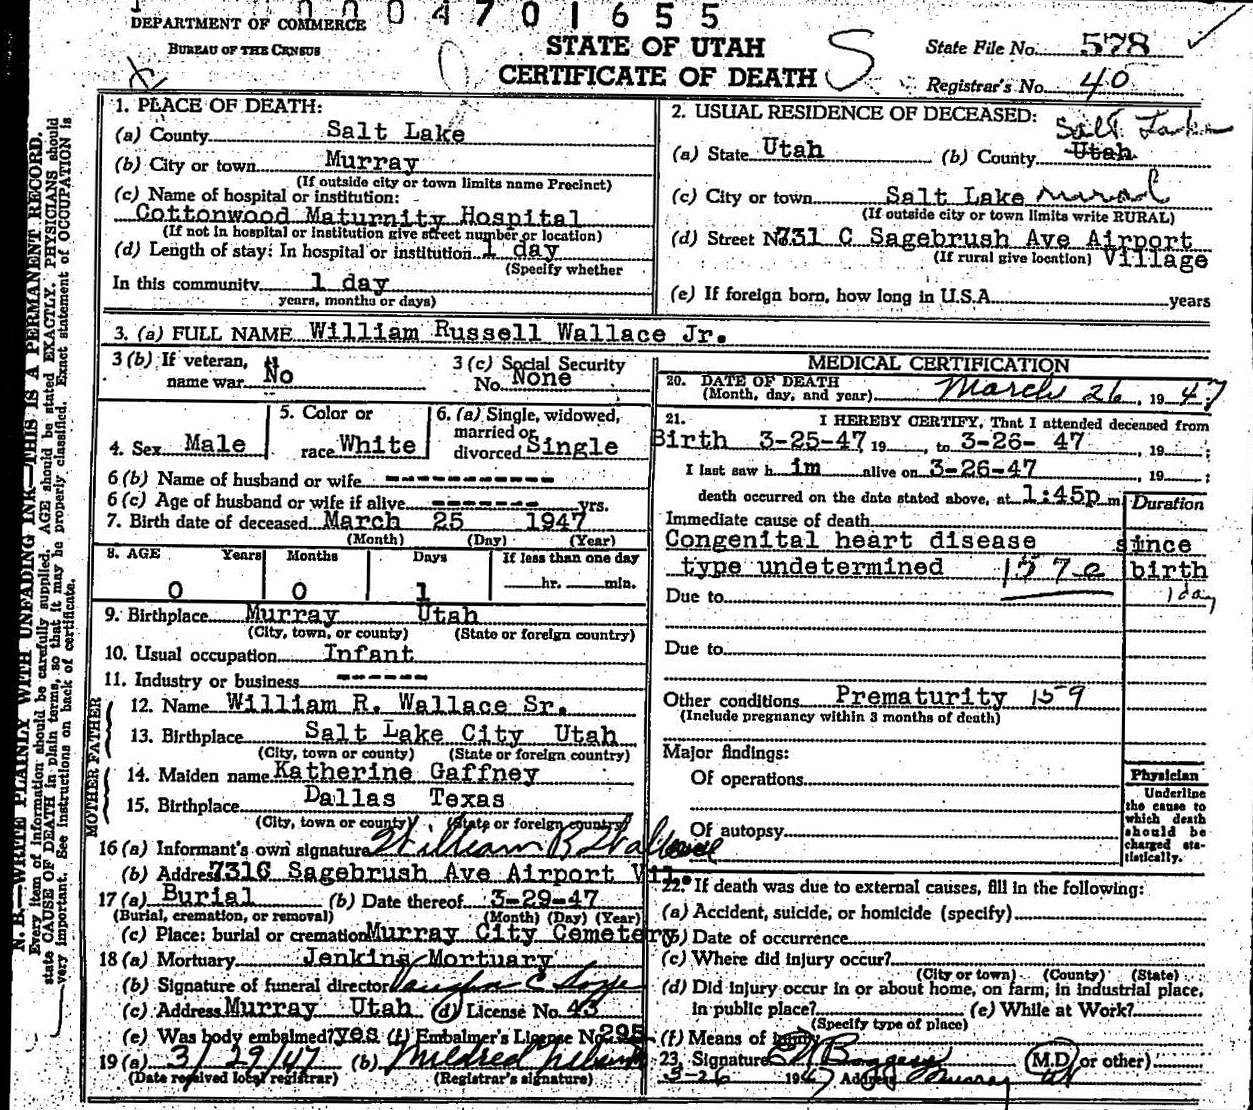 0 0 0 4 7 0 1 6 5 5
DEPARTMENT OF COMMERCE
BUREAU OF THE CENSUS
STATE OF UTAH
CERTIFICATE OF DEATH S
State File No. 578
Registrar's No. 40
N. B.—WRITE PLAINLY WITH UNFADING INK—THIS IS A PERMANENT RECORD.
Every item of information should be carefully supplied. AGE should be stated EXACTLY. PHYSICIANS should
state CAUSE OF DEATH in plain terms, so that it may be properly classified. Exact statement of OCCUPATION is
very important. See instructions on back of certificate.
1. PLACE OF DEATH:
(a) County Salt Lake
(b) City or town Murray
(If outside city or town limits name Precinct)
(c) Name of hospital or institution:
Cottonwood Maturnity Hospital
(If not in hospital or institution give street number or location)
(d) Length of stay: In hospital or institution 1 day
(Specify whether
In this community 1 day
years, months or days)
2. USUAL RESIDENCE OF DECEASED:
Salt Lake
(a) State Utah (b) County Utah
(c) City or town Salt Lake rural
(If outside city or town limits write RURAL)
(d) Street No. 731 C Sagebrush Ave Airport
(If rural give location) Village
(e) If foreign born, how long in U.S.A. years
3. (a) FULL NAME William Russell Wallace Jr.
3 (b) If veteran, name war No
3 (c) Social Security No. None
4. Sex Male
5. Color or race White
6. (a) Single, widowed, married or divorced Single
6 (b) Name of husband or wife -----------
6 (c) Age of husband or wife if alive ------- yrs.
7. Birth date of deceased March 25 1947
(Month) (Day) (Year)
8. AGE Years Months Days If less than one day
0 0 1 hr. min.
9. Birthplace Murray Utah
(City, town, or county) (State or foreign country)
10. Usual occupation Infant
11. Industry or business ------
FATHER
12. Name William R. Wallace Sr.
13. Birthplace Salt Lake City Utah
(City, town or county) (State or foreign country)
MOTHER
14. Maiden name Katherine Gaffney
15. Birthplace Dallas Texas
(City, town or county) (State or foreign country)
16 (a) Informant's own signature William R Wallace
(b) Address 731C Sagebrush Ave Airport Vil.
17 (a) Burial (b) Date thereof 3-29-47
(Burial, cremation, or removal) (Month) (Day) (Year)
(c) Place: burial or cremation Murray City Cemetery
18 (a) Mortuary Jenkins Mortuary
(b) Signature of funeral director Vaughn C
(c) Address Murray Utah (d) License No. 43
(e) Was body embalmed? yes (f) Embalmer's License No. 295
19 (a) 3/29/47 (b) Mildred
(Date received local registrar) (Registrar's signature)
MEDICAL CERTIFICATION
20. DATE OF DEATH
(Month, day, and year) March 26, 1947
21. I HEREBY CERTIFY, That I attended deceased from
Birth 3-25-47 19 , to 3-26- 47 , 19 ;
I last saw h im alive on 3-26-47 , 19 ;
death occurred on the date stated above, at 1:45p m
Duration
Immediate cause of death
Congenital heart disease since
type undetermined 157e birth
Due to 1 day
Due to
Other conditions Prematurity 159
(Include pregnancy within 3 months of death)
Major findings:
Of operations
Of autopsy
Physician
Underline
the cause to
which death
should be
charged sta-
tistically.
22. If death was due to external causes, fill in the following:
(a) Accident, suicide, or homicide (specify)
(b) Date of occurrence
(c) Where did injury occur?
(City or town) (County) (State)
(d) Did injury occur in or about home, on farm, in industrial place,
in public place? (e) While at Work?
(Specify type of place)
(f) Means of injury
23. Signature (M.D. or other)
3-26 1947 Address Murray Ut